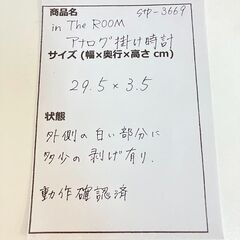 商品名
St中-3669
in The ROOM
アナログ掛け時計
サイズ (幅×奥行×高さ cm)
29.5 × 3.5
状態
外側の白い部分に
多少の剥げ有り.
動作確認済